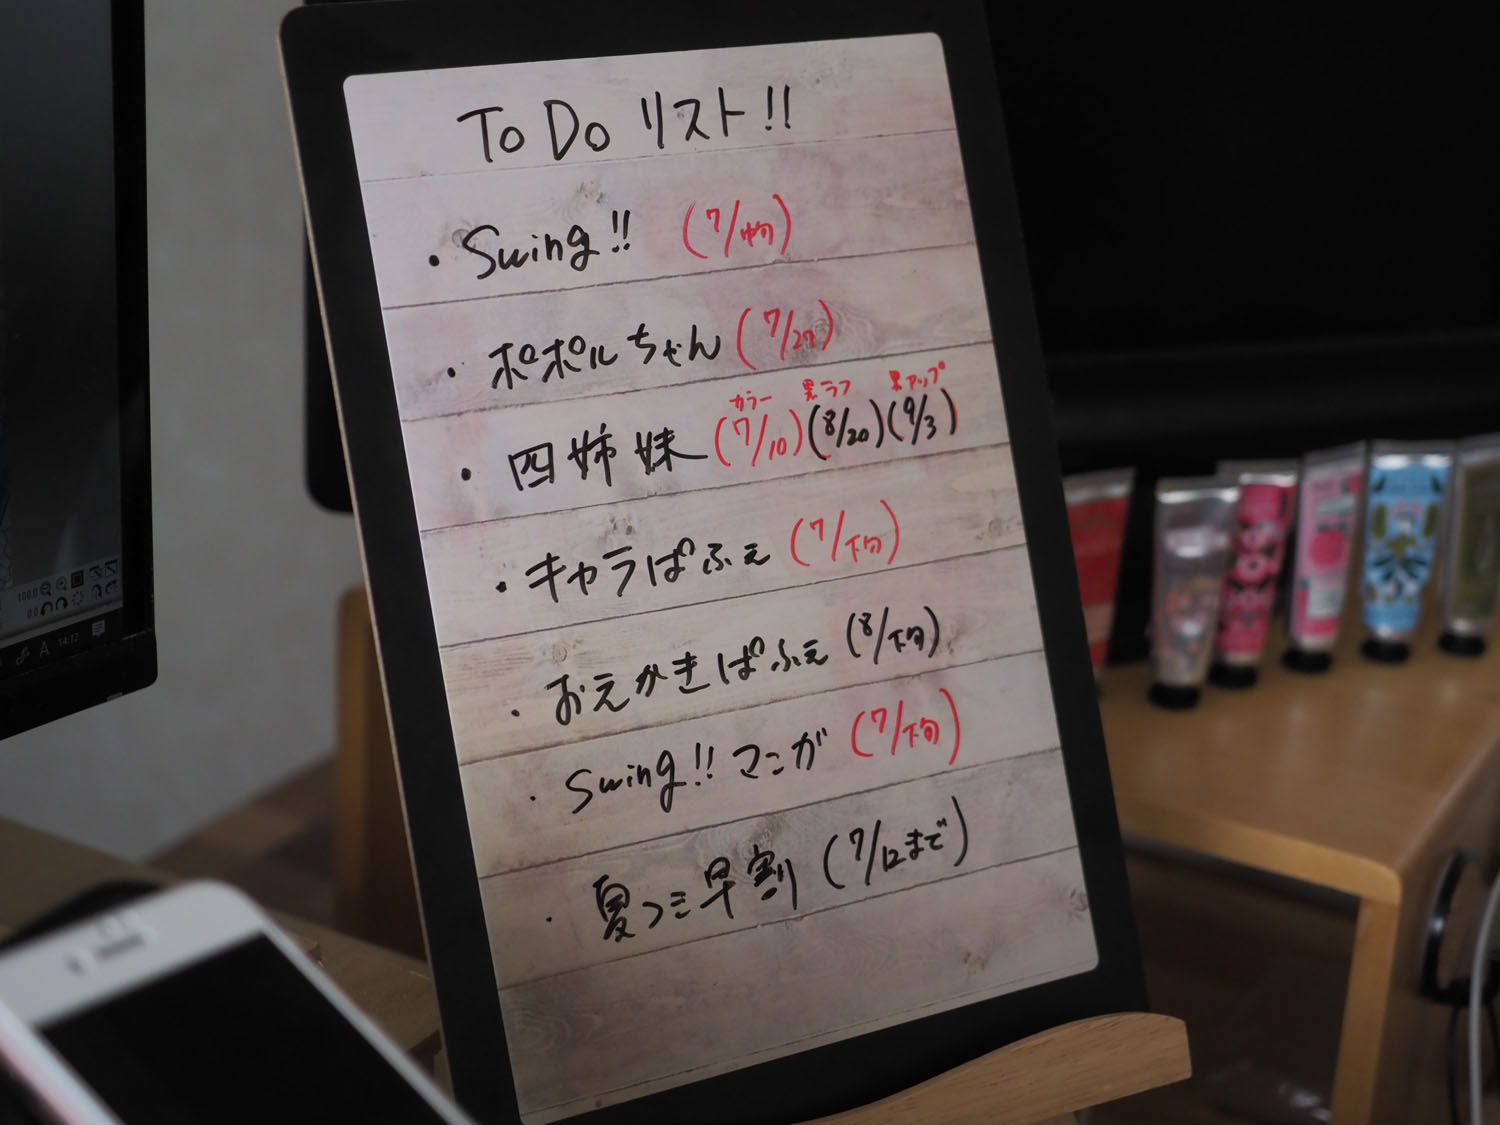 To Do リスト!!
・Swing!! (7/中旬)
・ポポルちゃん (7/27)
カラー 黒ラフ 黒アップ
・四姉妹 (7/10)(8/20)(9/3)
・キャラぱふぇ (7/下旬)
・おえかきぱふぇ (8/下旬)
・Swing!! マンガ (7/下旬)
・夏コミ早割 (7/12まで)
100.0
0.0
A 14:12